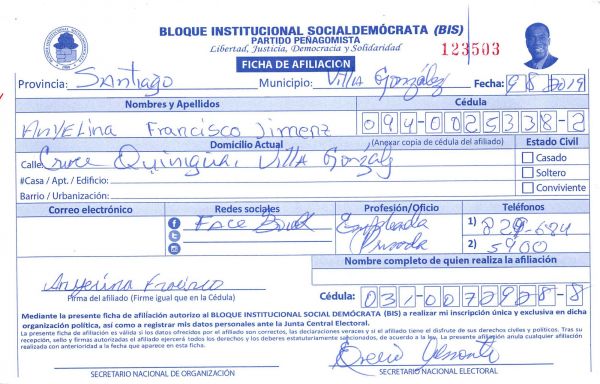 BLOQUE INSTITUCIONAL SOCIALDEMÓCRATA (BIS)
PARTIDO PEÑAGOMISTA
Libertad, Justicia, Democracia y Solidaridad
123503
FICHA DE AFILIACION
Provincia: Santiago Municipio: Villa González Fecha: 9 8 2019
Nombres y Apellidos Cédula
Anyelina Francisco Jimenz 094-0025338-2
Domicilio Actual (Anexar copia de cédula del afiliado) Estado Civil
Calle: Cruce Quinigua, Villa González
Casado
#Casa / Apt. / Edificio: Soltero
Barrio / Urbanización: Conviviente
Correo electrónico Redes sociales Profesión/Oficio Teléfonos
Face Book Empleada 1) 829-684
Privada 2) 5900
Nombre completo de quien realiza la afiliación
Anyelina Francisco
Firma del afiliado (Firme igual que en la Cédula) Cédula: 031-0072928-8
Mediante la presente ficha de afiliación autorizo al BLOQUE INSTITUCIONAL SOCIAL DEMÓCRATA (BIS) a realizar mi inscripción única y exclusiva en dicha
organización política, así como a registrar mis datos personales ante la Junta Central Electoral.
La presente ficha de afiliación es válida si los datos ofrecidos por el afiliado son correctos, las declaraciones veraces y si el afiliado tiene el disfrute de sus derechos civiles y políticos. Tras su
recepción, sello y firmas autorizadas el afiliado ejercerá todos los derechos y los deberes estatutariamente sancionados, de acuerdo a la ley. La presente afiliación anula cualquier afiliación
realizada con anterioridad a la fecha que aparece en esta ficha.
SECRETARIO NACIONAL DE ORGANIZACIÓN SECRETARIO NACIONAL ELECTORAL